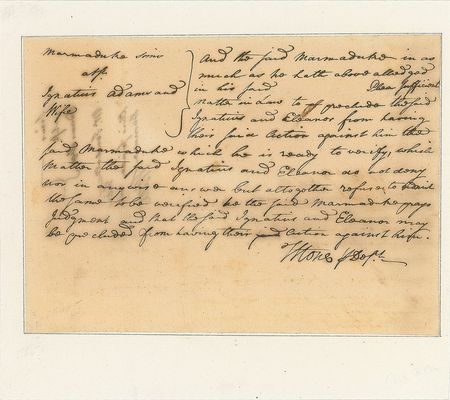 Marmaduke Sims
ats.
Ignatius Adams and
Wife
And the said Marmaduke in as
much as he hath above alledged
in his said Plea sufficient
matter in Law to preclude the said
Ignatius and Eleanor from having
their said Action against him the
said Marmaduke which he is ready to verify, which
Matter the said Ignatius and Eleanor do not deny
nor in anywise answer but altogether refuse to admit
the same to be verified he the said Marmaduke prays
Judgment and that the said Ignatius and Eleanor may
be precluded from having their said Action against him.
Stone p Deft.